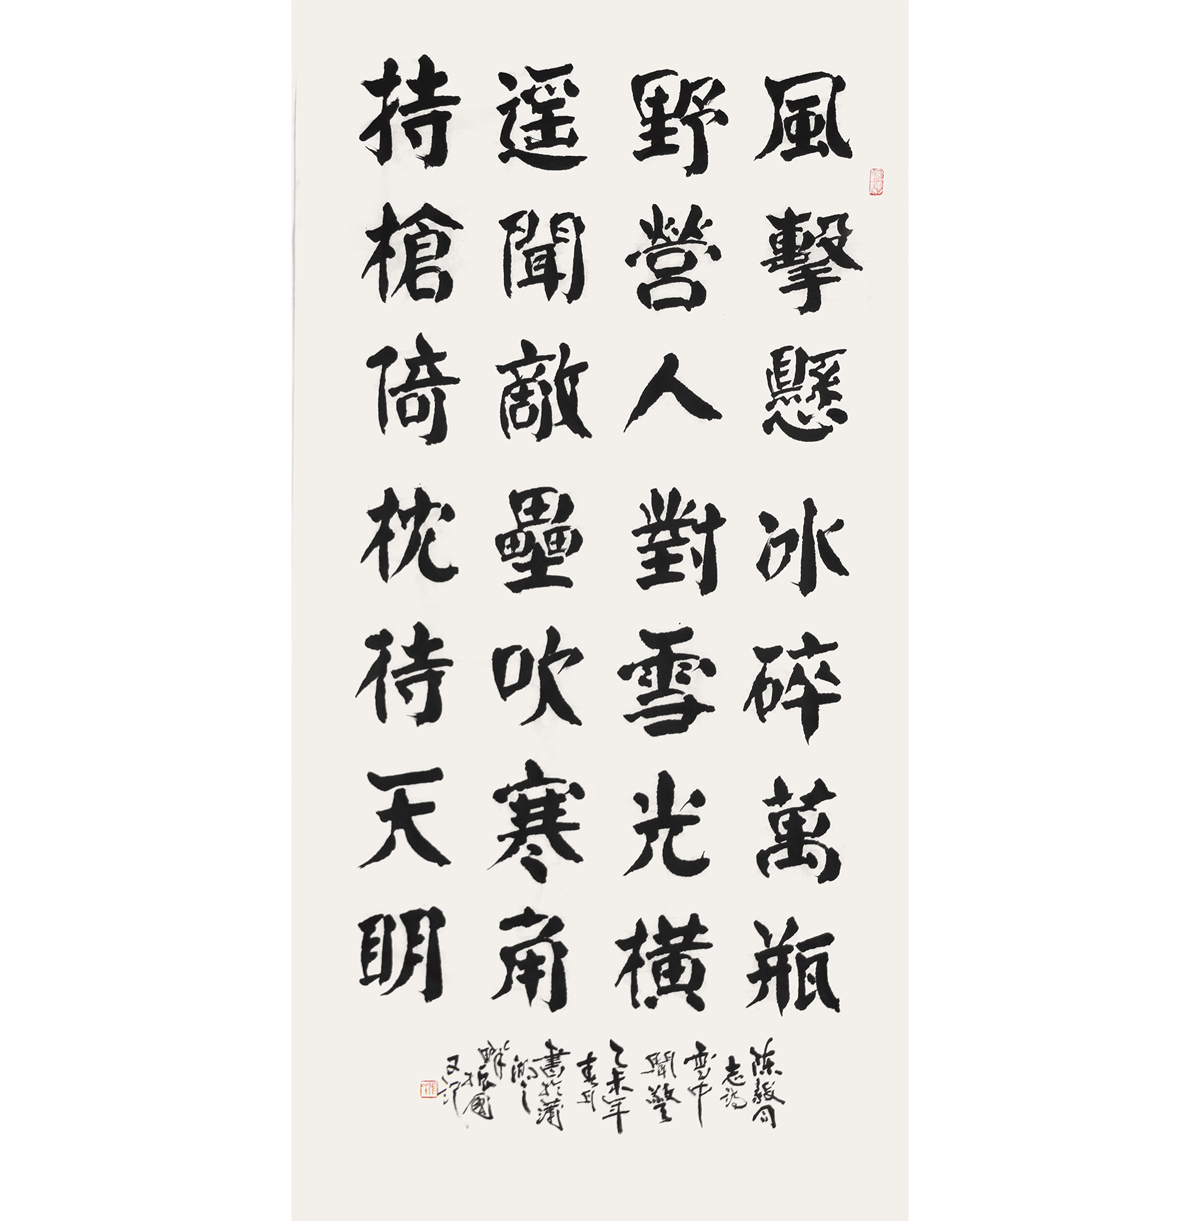 風擊懸冰碎萬瓶
野營人對雪光橫
遥聞敵壘吹寒角
持槍倚枕待天明
陈毅同
志詩
雪中
聞警
乙未年
春月
書於蒲